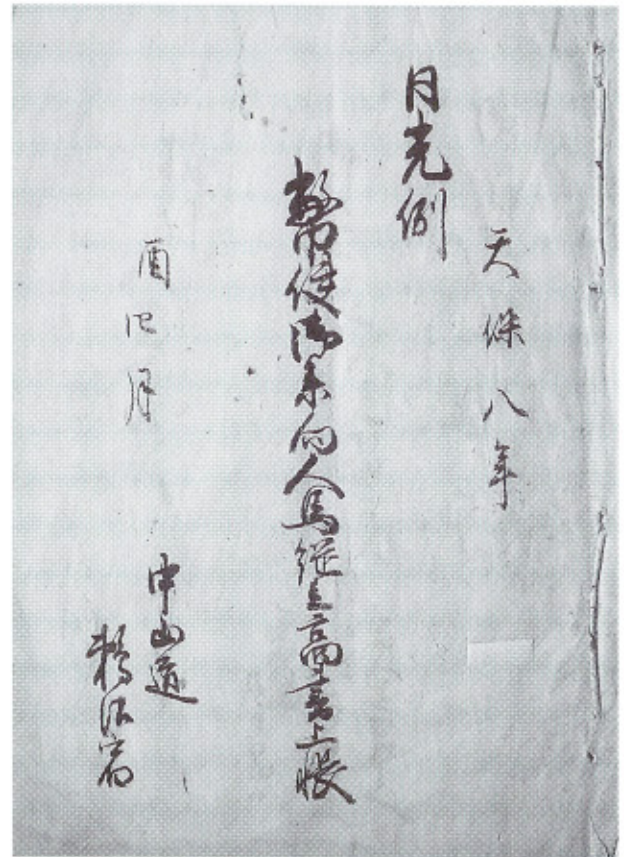 天保八年
日光例
幣使御参向人馬継立高書上帳
酉四月
中山道
鵜沼宿